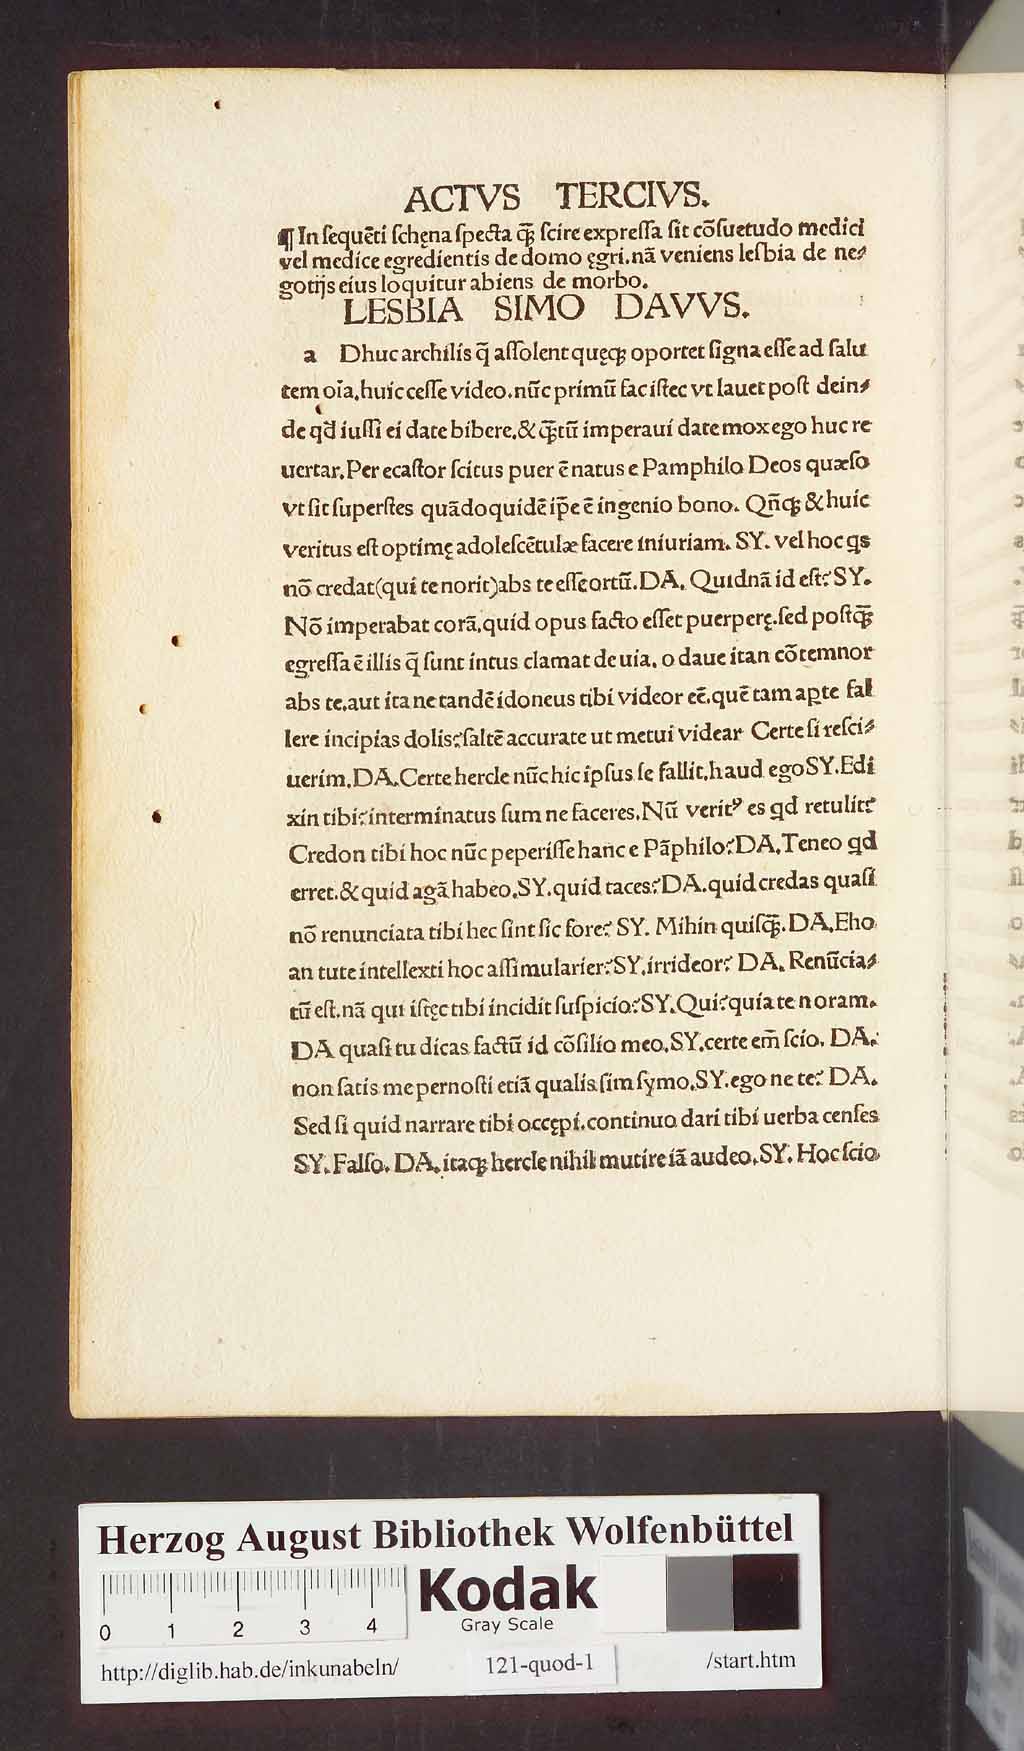 ACTVS TERCIVS.
¶ In ſequēti ſchęna ſpecta q̄ȝ ſcire expreſſa ſit cōſuetudo medici
vel medice egredientis de domo ęgri.nā veniens leſbia de ne⸗
gotijs eius loquitur abiens de morbo.
LESBIA SIMO DAVVS.
a Dhuc archilis q̄ aſſolent quęqȝ oportet ſigna eſſe ad ſalu
tem oīa,huic ceſſe video.nūc primū fac iſtec vt lauet poſt dein⸗
de qđ iuſſi ei date bibere.&q̄ȝtū imperaui date mox ego huc re
uertar.Per ecaſtor ſcitus puer ē natus e Pamphilo Deos quæſo
vt ſit ſuperſtes quādoquidē ip̄e ē ingenio bono. Qn̄qȝ &huic
veritus eſt optimę adoleſcētulæ facere iniuriam. SY. vel hoc qs
nō credat(qui te norit)abs te eſſe ortū.DA. Quidnā id eſt? SY.
Nō imperabat corā,quid opus facto eſſet puerperę.ſed poſtq̄ȝ
egreſſa ē illis q̄ ſunt intus clamat de uia. o daue itan cōtemnor
abs te.aut ita ne tandē idoneus tibi videor eē.quē tam apte fal
lere incipias dolis?ſaltē accurate ut metui videar Certe ſi reſci⸗
uerim.DA.Certe hercle nūc hic ipſus ſe fallit,haud egoSY.Edi
xin tibi?interminatus ſum ne faceres.Nū veritꝰ es qđ retulit?
Credon tibi hoc nūc peperiſſe hanc e Pāphilo?DA.Teneo qđ
erret.&quid agā habeo.SY.quid taces?DA.quid credas quaſi
nō renunciata tibi hec ſint ſic fore? SY. Mihin quiſq̄ȝ.DA.Eho
an tute intellexti hoc aſſimularier?SY.irrideor? DA. Renūcia⸗
tū eſt.nā qui iſtęc tibi incidit ſuſpicio?SY.Qui?quia te noram.
DA quaſi tu dicas factū id cōſilio meo.SY.certe em̄ ſcio. DA.
non ſatis me pernoſti etiā qualis ſim ſymo.SY.ego ne te? DA.
Sed ſi quid narrare tibi occępi.continuo dari tibi uerba cenſes
SY.Falſo. DA.itaqȝ hercle nihil mutire iā audeo.SY. Hoc ſcio
Herzog August Bibliothek Wolfenbüttel
Kodak
Gray Scale
0 1 2 3 4
http://diglib.hab.de/inkunabeln/ 121-quod-1 /start.htm